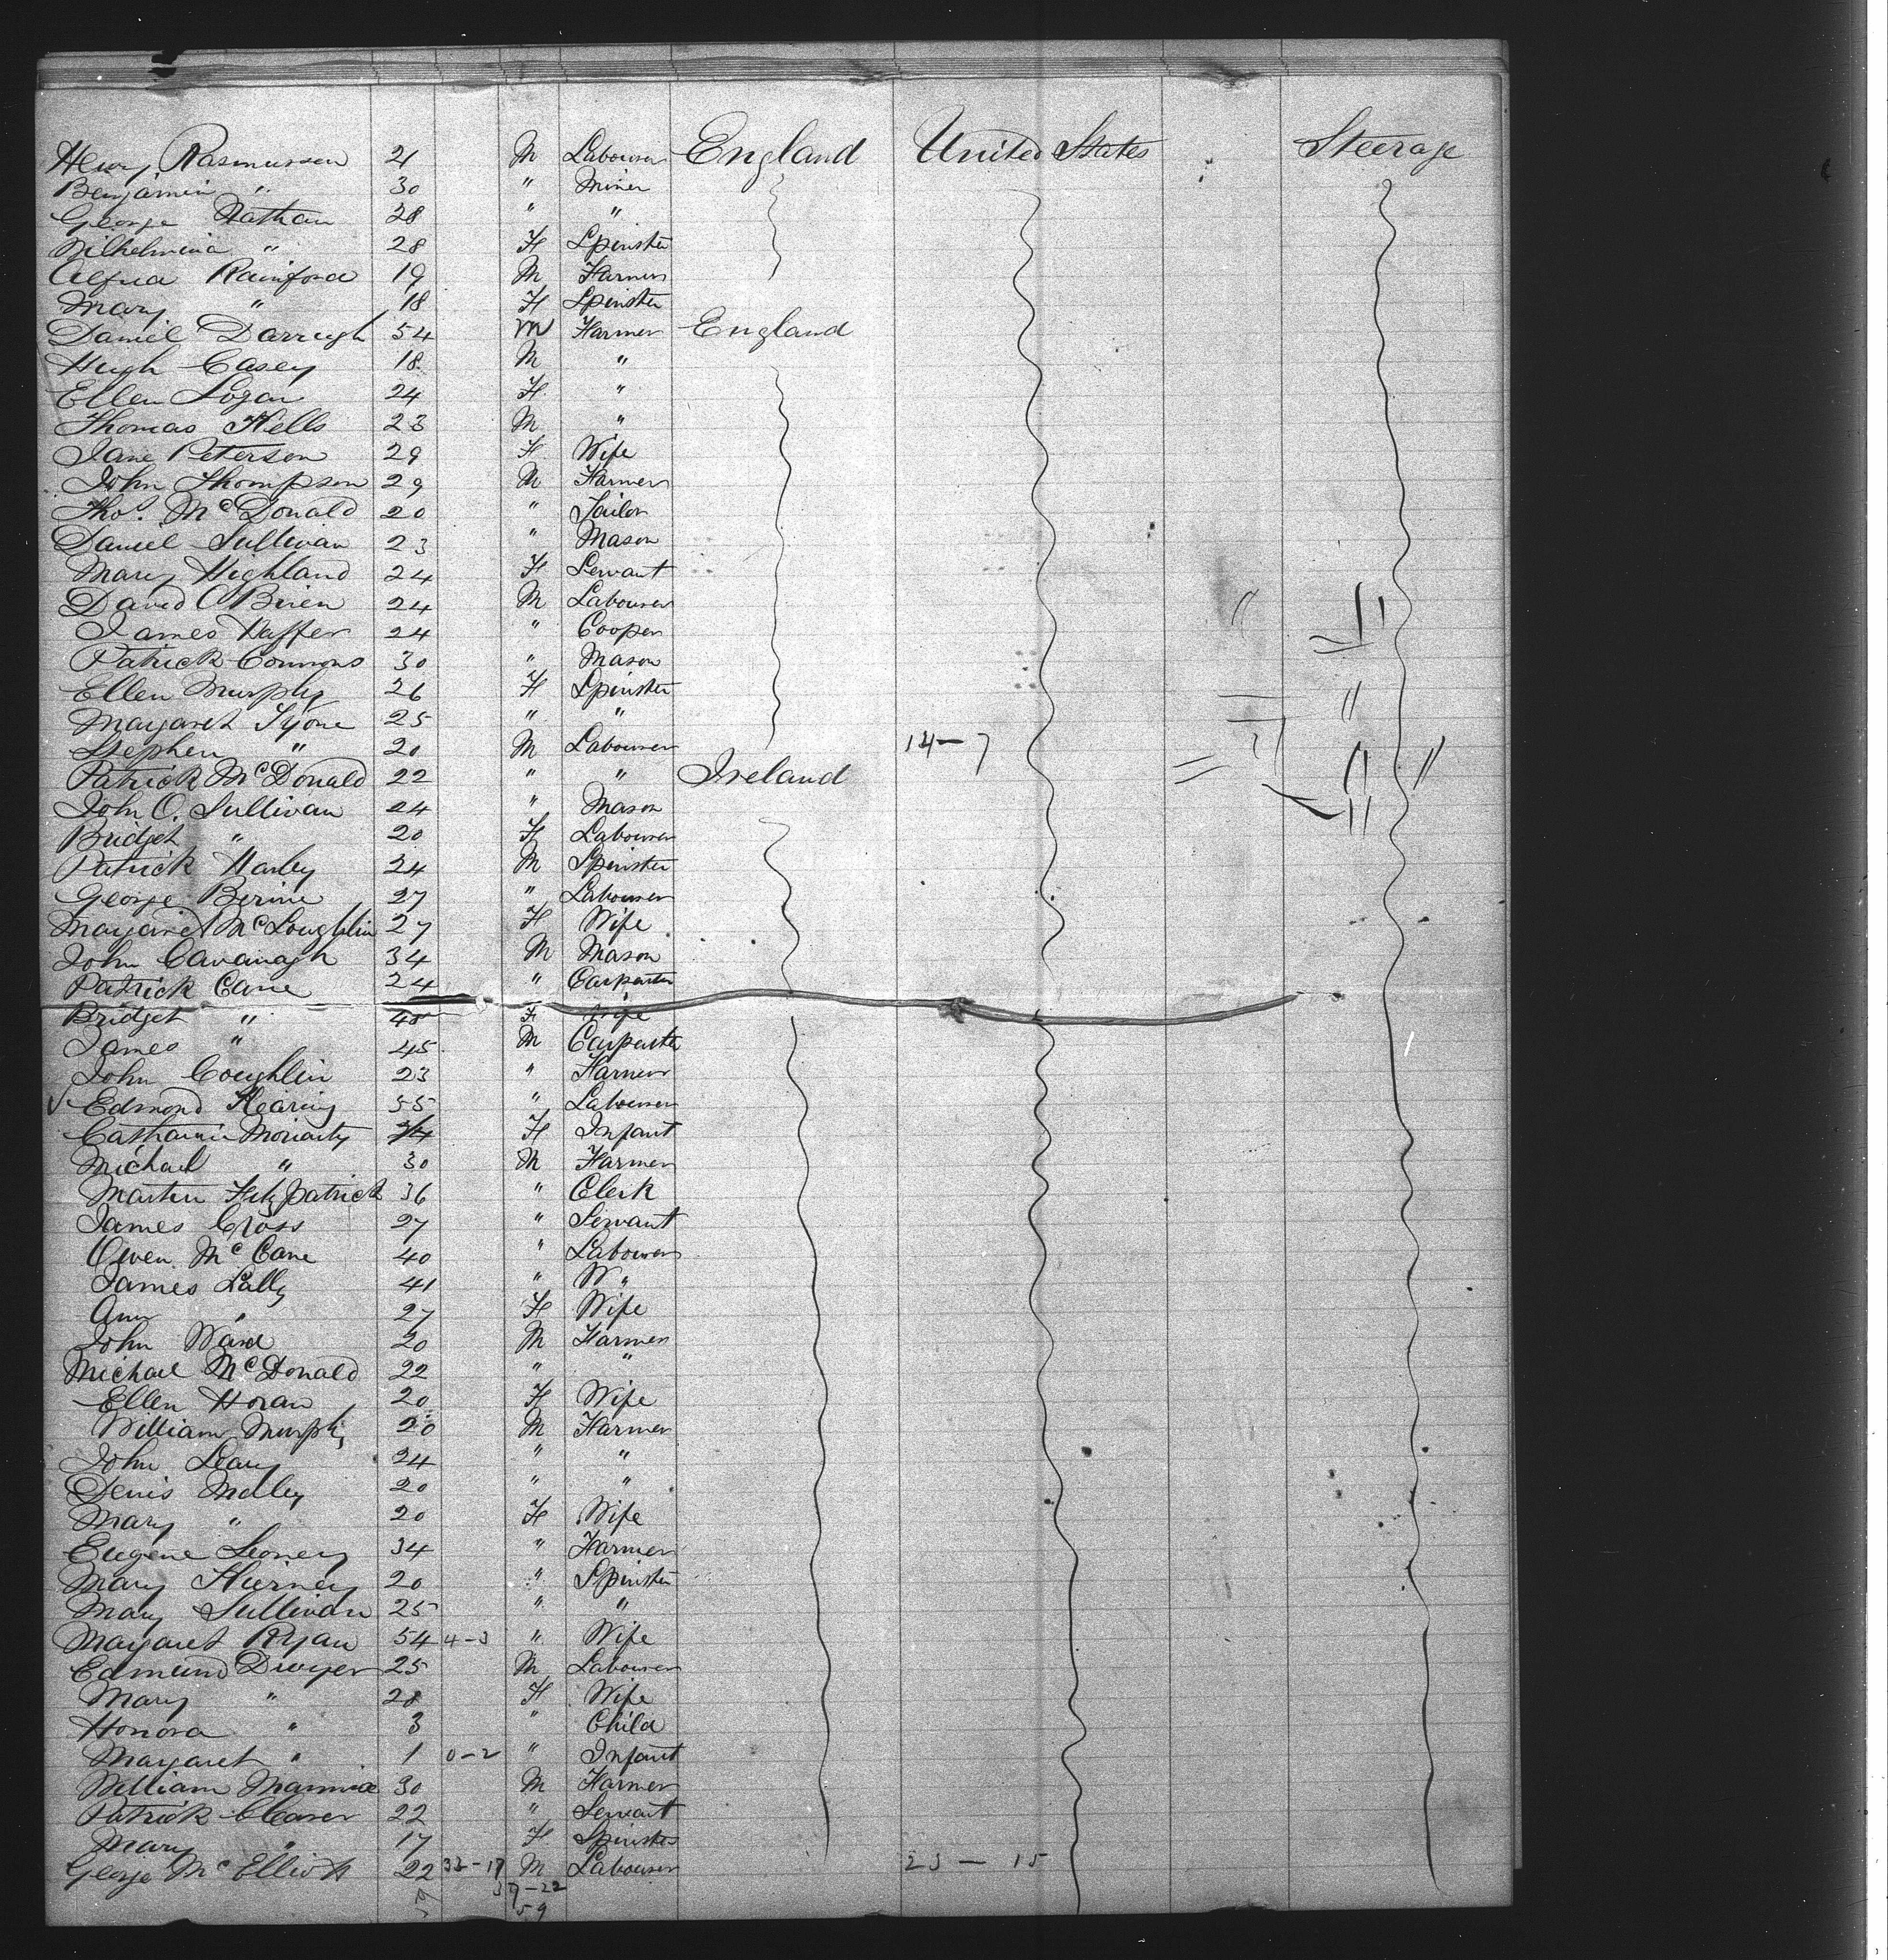 Henry Rasmussen 21 M Labourer England United States Steerage
Benjamin " 30 " Miner
George Nathan 28 " "
Wilhelmina " 28 F Spinster
Alfred Rainford 19 M Farmer
Mary " 18 F Spinster
Daniel Darrugh 54 M Farmer England
Hugh Casey 18 M "
Ellen Logan 24 F "
Thomas Kells 23 M "
Jane Peterson 29 F Wife
John Thompson 29 M Farmer
Thos. McDonald 20 " Tailor
Daniel Sullivan 23 " Mason
Mary Highland 24 F Servant
David OBrien 24 M Labourer
James 24 " Cooper
Patrick Connors 30 " Mason
Ellen Murphy 26 F Spinster
Margaret Tyone 25 " "
Stephen " 20 M Labourer 14-7
Patrick McDonald 22 " " Ireland
John O. Sullivan 24 " Mason
Bridget " 20 F Labourer
Patrick Harley 24 M Spinster
George 27 " Labourer
Margaret McLoughlin 27 F Wife
John Cavanagh 34 M Mason
Patrick Cane 24 " Carpenter
Bridget " F Wife
James " 45 M Carpenter
John Coughlin 23 " Farmer
Edmond Hearing 55 " Labourer
Catharine Moriarty F Infant
Michael " 30 M Farmer
Martin Fitzpatrick 36 " Clerk
James Cross 27 " Servant
Owen McCane 40 " Labourer
James Lally 41 " "
Ann " 27 F Wife
John Ward 20 M Farmer
Michael McDonald 22 " "
Ellen Horan 20 F Wife
William Murphy 20 M Farmer
John Leary 24 " "
Denis 20 " "
Mary " 20 F Wife
Eugene 34 " Farmer
Mary 20 " Spinster
Mary Sullivan 25 " "
Margaret Ryan 54 4-3 " Wife
Edmund Dwyer 25 M Labourer
Mary " 28 F Wife
Honora " 3 " Child
Margaret " 1 0-2 " Infant
William 30 M Farmer
Patrick 22 " Servant
Mary " 17 F Spinster
George McElliott 22 M Labourer 23-15
37-22
59